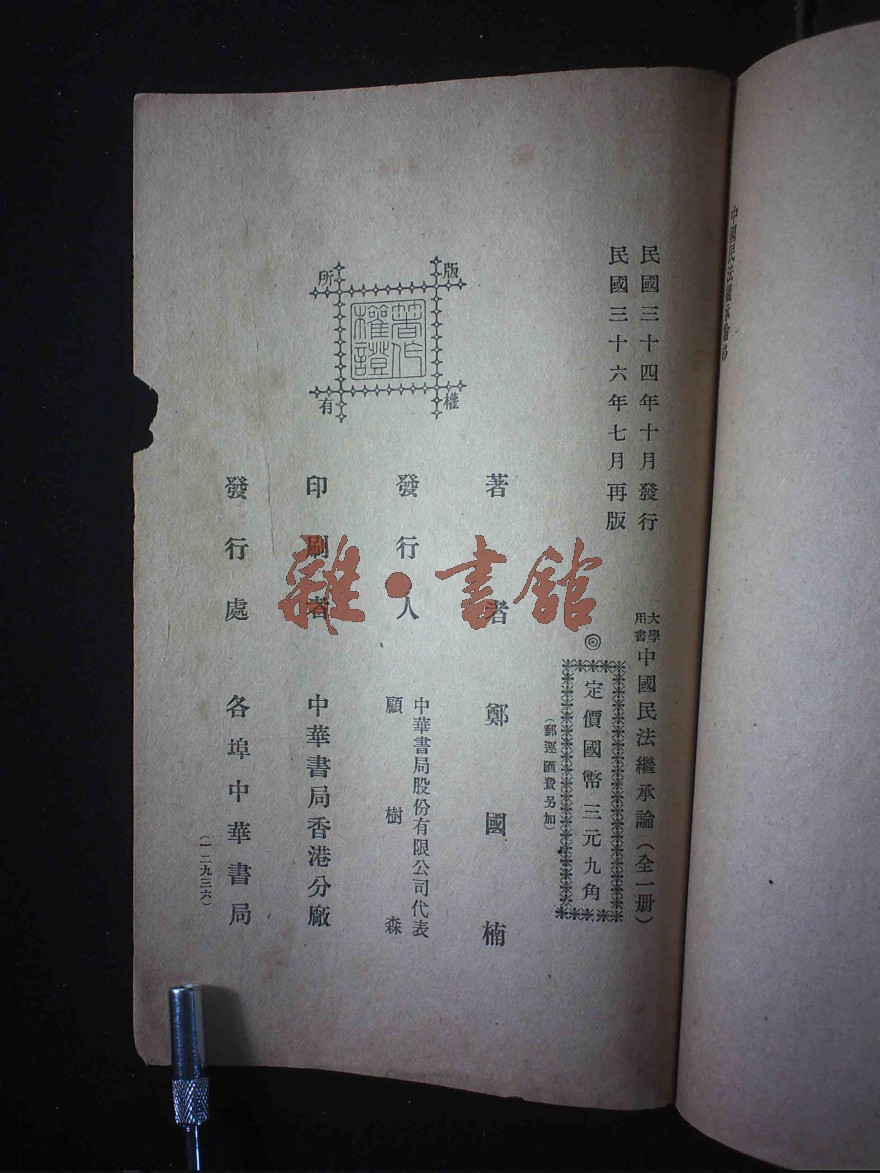 民國三十四年十月發行
民國三十六年七月再版
大學用書 中國民法繼承論（全一册）
◎
定價國幣三元九角
（郵運匯費另加）
著者 鄭國楠
發行人 中華書局股份有限公司代表
顧樹森
印刷者 中華書局香港分廠
發行處 各埠中華書局
（一二九三六）
版權所有
著作權證
雜·書館
中國民法繼承論